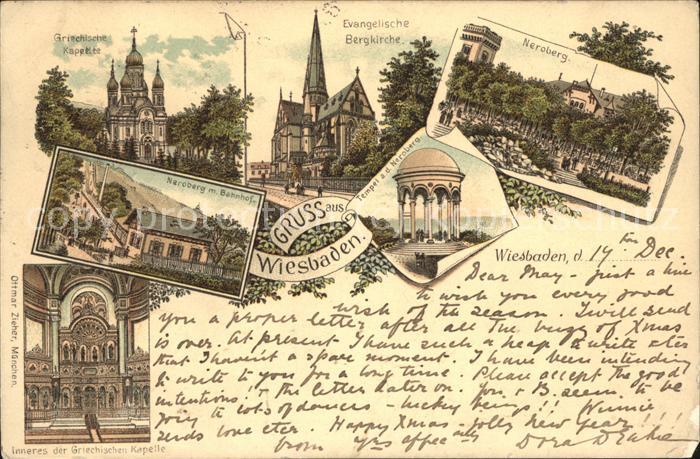 Griechische
Kapelle
Evangelische
Bergkirche.
Neroberg.
Neroberg m. Bahnhof.
Tempel a. d. Neroberg
GRUSS aus
Wiesbaden.
Wiesbaden, d. 14th Dec.
Dear May - just a line
to wish you every good
wish of the season. I will send
you a proper letter after all the bugg of Xmas
is over. At present I have such a heap to write etc
that I haven't a spare moment. I have been intending
to write to you for a long time. Please accept the good
intentions & the letter later on. You & B. seem to be
going to lots of dances - lucky beings!! Winnie
sends love etc. Happy Xmas - jolly new year!
from yrs affec
Dora D
Ottmar Zieher, München.
Inneres der Griechischen Kapelle